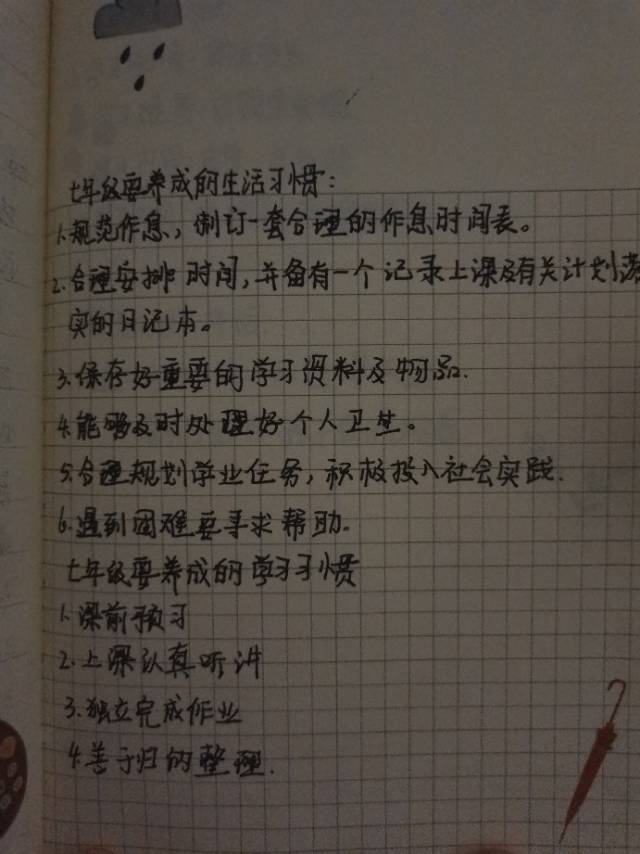 七年级要养成的生活习惯:
1.规范作息,制订一套合理的作息时间表。
2.合理安排时间,并备有一个记录上课及有关计划落
实的日记本。
3.保存好重要的学习资料及物品.
4.能够及时处理好个人卫生。
5.合理规划学业任务,积极投入社会实践.
6.遇到困难要寻求帮助.
七年级要养成的学习习惯
1.课前预习
2.上课认真听讲
3.独立完成作业
4.善于归的整理.